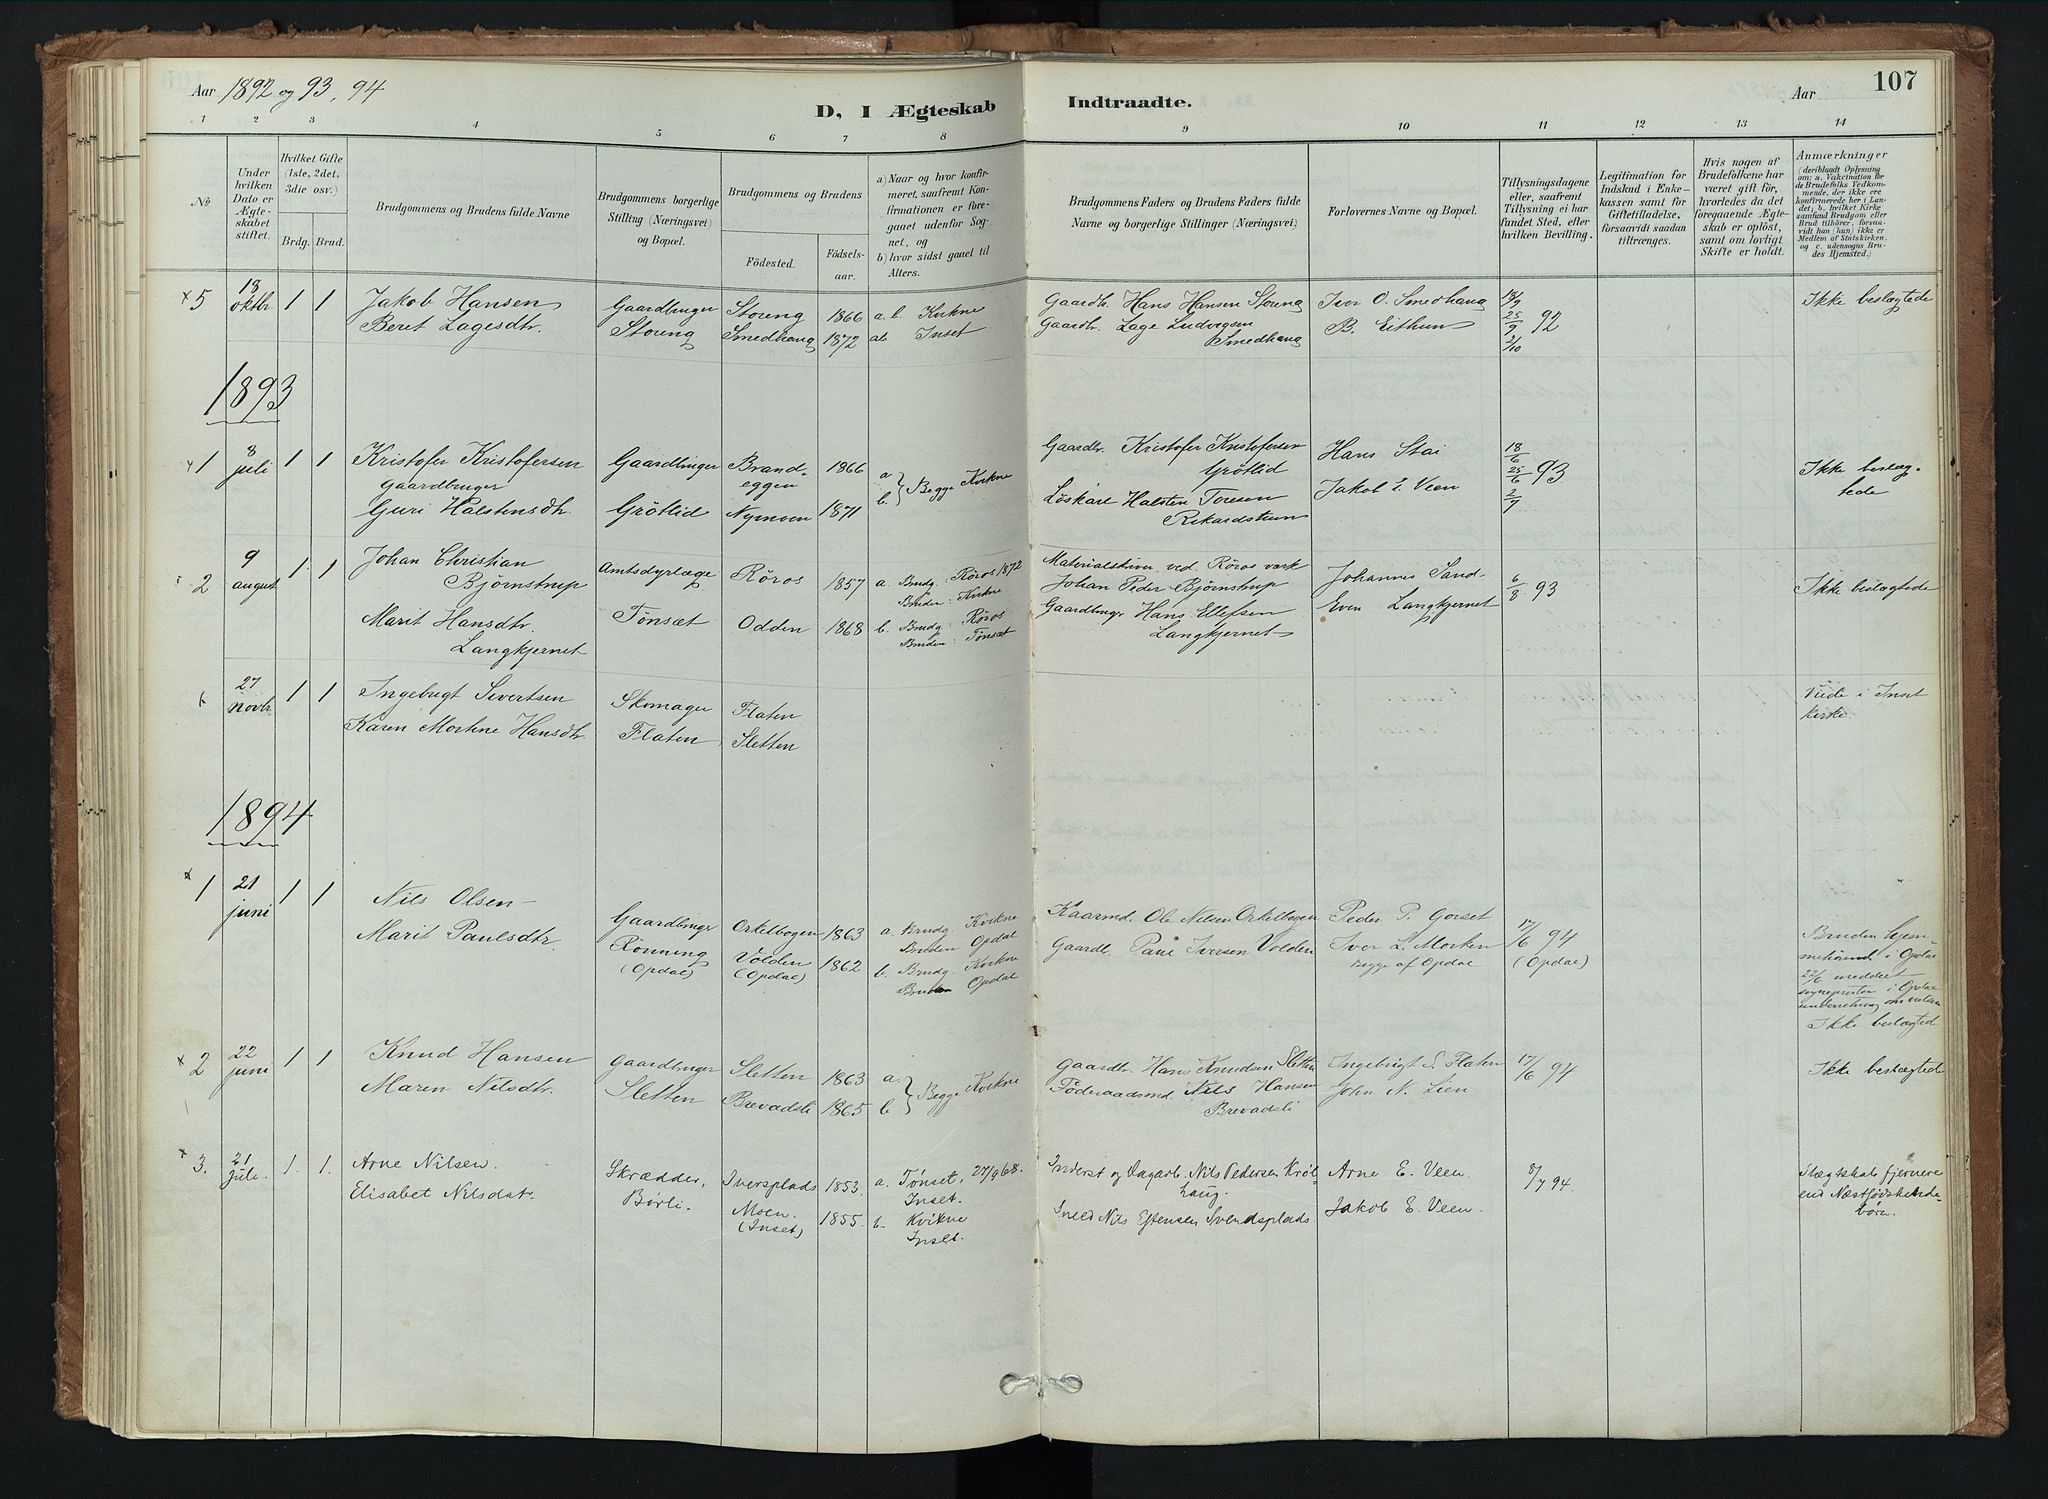 Aar 1892 og 93, 94
D, I Ægteskab Indtraadte.
Aar
107
1 2 3 4 5 6 7 8 9 10 11 12 13 14
No
Under hvilken Dato er Ægteskabet stiftet.
Hvilket Gifte (1ste, 2det, 3die osv.)
Brdg. Brud.
Brudgommens og Brudens fulde Navne
Brudgommens borgerlige Stilling (Næringsvei) og Bopæl.
Brudgommens og Brudens
Fødested.
Fødselsaar.
a) Naar og hvor konfirmeret, saafremt Konfirmationen er foregaaet udenfor Sognet, og
b) hvor sidst gaaet til Alters.
Brudgommens Faders og Brudens Faders fulde Navne og borgerlige Stillinger (Næringsvei)
Forlovernes Navne og Bopæl.
Tillysningsdagene eller, saafremt Tillysning ei har fundet Sted, efter hvilken Bevilling.
Legitimation for Indskud i Enkekassen samt for Giftetilladelse, forsaavidt saadan tiltrænges.
Hvis nogen af Brudefolkene har været gift før, hvorledes da det foregaaende Ægteskab er opløst, samt om lovligt Skifte er holdt.
Anmærkninger
(deriblandt Oplysning om: a. Vakcination for de Brudefolks Vedkommende, der ikke ere konfirmerede her i Landet; b. hvilket Kirkesamfund Brudgom eller Brud tilhører, forsaavidt han (hun) ikke er Medlem af Statskirken, og c. udensogns Brudes Hjemsted.)
x 5 18 oktbr 1 1 Jakob Hansen Gaardbruger Storeng 1866 a. b. Kvikne Gaardbr. Hans Hansen Storeng Iver O. Smedhaug 18/9 Ikke beslægtede
Beret Lagesdtr. Storeng Smedhaug 1872 ab Inset Gaardbr. Lage Ludvigsen Smedhaug B. Eithun 25/9 92 2/10
1893
1 8 juli 1 1 Kristofer Kristofersen Gaardbruger Brandeggen 1866 a b. Begge Kvikne Gaardbr. Kristofer Kristofersen Grötlid Hans Stai 18/6 25/6 93 2/7 Ikke beslægtede
Gaardbruger
Guri Halstensdtr. Grötlid Nymoen 1871 Löskarl Halsten Toresen Rikardstrøen Jakob E. Veen
2 9 august 1. 1. Johan Christian Bjørnstrup Amtsdyrlæge Röros 1857 a. Brudg: Röros 1872 Materialskriver ved Röros verk Johan Peder Bjørnstrup Johannes Sand 6/8 93 Ikke beslægtede
Bruden: Kvikne
Marit Hansdtr. Langkjernet Tönsæt Odden 1868 b. Brudg: Röros Gaardbruger Hans Ellefsen Langkjernet Even Langkjernet
Bruden: Tönsæt
27 novbr 1 1 Ingebrigt Sivertsen Skomager Flaten Viede i Inset kirke
Karen Marthne Hansdtr. Flaten Sletten
1894
x 1 21 juni 1 1 Nils Olsen Gaardbruger Orkelbogen 1863 a. Brudg. Kvikne Kaarmd. Ole Nilsen Orkelbogen Peder P. Gorset 17/6 94
Bruden Opdal
Marit Paulsdtr. Rönning (Opdal) Volden (Opdal) 1862 b. Brudg. Kvikne Gaardb. Paul Iversen Volden Iver L. Morken (Opdal)
Bruden Opdal
Begge af Opdal
Bruden hjemmehørende i Opdal
22/6 meddelt sogneprester i Opdal underretning om vielsen
Ikke beslægted
x 2 22 juni 1 1 Knud Hansen Gaardbruger Sletten 1863 a. b. Begge Kvikne Gaardbr. Hans Knudsen Sletten Ingebrigt S. Flaten 17/6 94 Ikke beslægtede
Maren Nilsdtr. Sletten Brevadsli 1865 Föderaadsmd. Nils Hansen Brevadsli John N. Lien
x 3. 21 Juli. 1. 1. Arne Nilsen. Skrædder, Iversplads 1853. a. Tønset, 27/9 68. Inset. Inderst og Dagarb. Nils Pedersen Krölhaug. Arne E. Veen. 8/7 94. Slægtskab fjernere end Næstsødskendebörn.
Elisabet Nilsdat. Børli. Moen. (Inset) 1855. b. Kvikne Inset. Smed Nils Estensen Svendsplads. Jakob E. Veen.